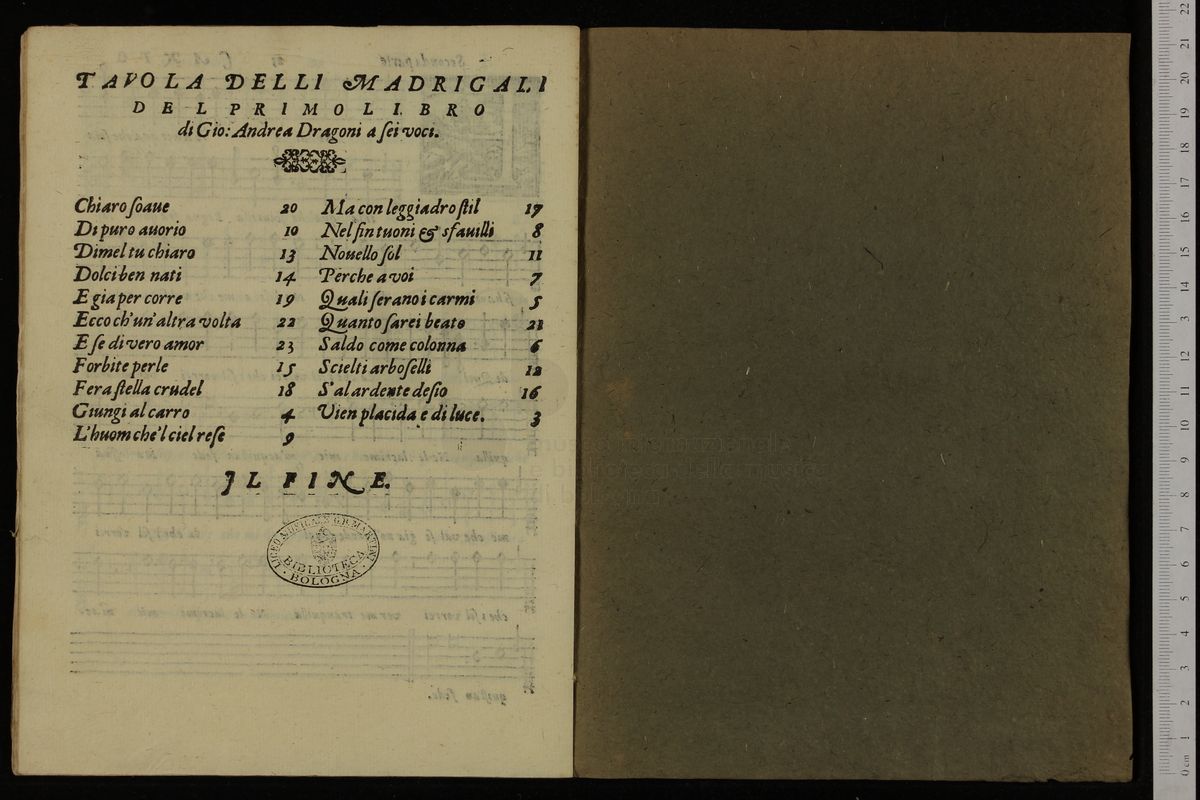 TAVOLA DELLI MADRIGALI
DEL PRIMO LIBRO
di Gio: Andrea Dragoni a ſei voci.
Chiaro ſoaue 20
Di puro auorio 10
Dimel tu chiaro 13
Dolci ben nati 14
E gia per corre 19
Ecco ch'un'altra volta 22
E ſe di vero amor 23
Forbite perle 15
Fera ſtella crudel 18
Giungi al carro 4
L'huom che'l ciel reſe 9
Ma con leggiadro ſtil 17
Nel ſin tuoni & sfauilli 8
Nouello ſol 11
Perche a voi 7
Quali ſerano i carmi 5
Quanto ſarei beato 21
Saldo come colonna 6
Scielti arboſelli 12
S'al ardente deſio 16
Vien placida e di luce. 3
IL FINE.
LICEO MUSICALE G.B. MARTINI
BIBLIOTECA
BOLOGNA
0 cm 1 2 3 4 5 6 7 8 9 10 11 12 13 14 15 16 17 18 19 20 21 22